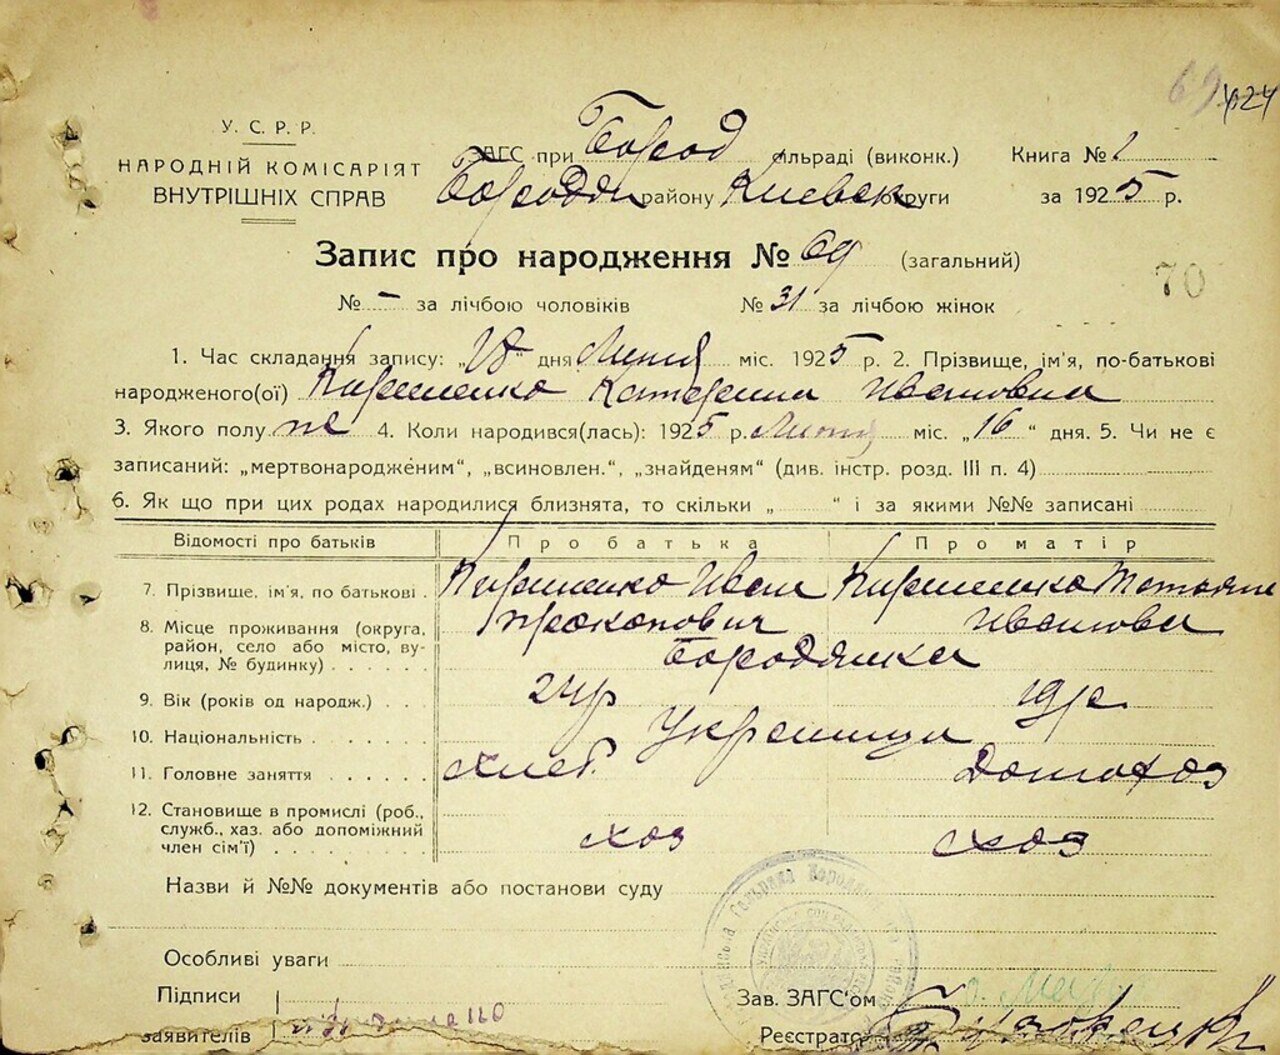 424
У. С. Р. Р.
НАРОДНІЙ КОМІСАРІЯТ
ВНУТРІШНІХ СПРАВ
ЗАГС при Бород сільраді (виконк.) Книга № 1
Бородян району Киевск округи за 1925 р.
Запис про народження № 69 (загальний)
70
№ - за лічбою чоловіків № 31 за лічбою жінок
1. Час складання запису: „ “ дня міс. 1925 р. 2. Прізвище, ім'я, по-батькові
народженого(ої) Катерина Ивановна
3. Якого полу же 4. Коли народився(лась): 1925 р. міс. „16“ дня. 5. Чи не є
записаний: „мертвонародженим“, „всиновлен.“, „знайденям“ (див. інстр. розд. III п. 4)
6. Як що при цих родах народилися близнята, то скільки „ “ і за якими №№ записані
Відомості про батьків Про батька Про матір
7. Прізвище, ім'я, по батькові . Иван Татьяна
Прокопович Иванова
8. Місце проживання (округа,
район, село або місто, ву-
лиця, № будинку) . . . . . . Бородянка
9. Вік (років од народж.) . . . 24р 19р
10. Національність . . . . . . . Украинцы
11. Головне заняття . . . . . . хлеб. Домохоз
12. Становище в промислі (роб.,
служб., хаз. або допоміжний
член сім'ї) . . . . . . . . хоз схоз
Назви й №№ документів або постанови суду
Особливі уваги
Підписи
заявителів
Зав. ЗАГС'ом
Реєстратор